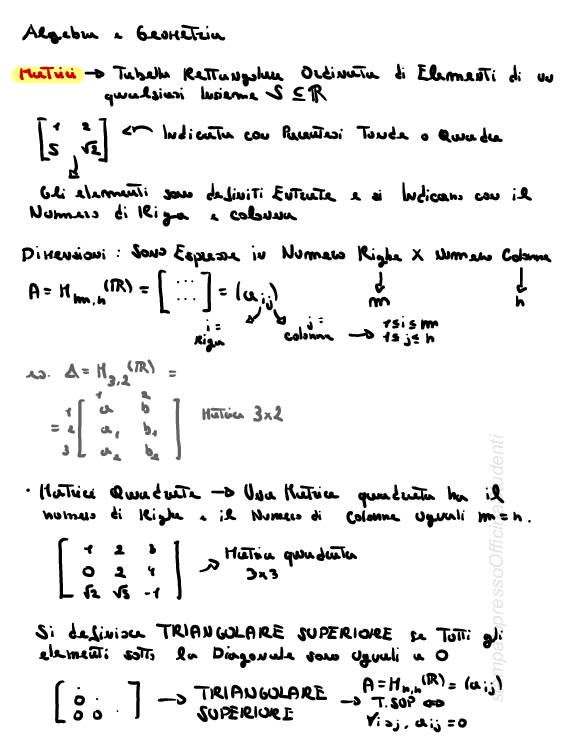 Algebra e Geometria
Matrici → Tabella Rettangolare Ordinata di Elementi di un
qualsiasi Insieme S ⊆ ℝ
[1 2
5 √2] ← Indicata con Parentesi Tonde o Quadre
Gli elementi sono definiti Entrate e si Indicano con il
Numero di Riga e colonna
Dimensioni : Sono Espresse in Numero Righe X Numero Colonne
A = M_{m,n}(ℝ) = [... ...] = (a_{ij}) m n
i = Riga j = colonna → 1≤i≤m
1≤j≤n
es. A = M_{3,2}(ℝ) =
1 2
= 1 [a b
2 a_1 b_1
3 a_2 b_2] Matrice 3x2
· Matrici Quadrate → Una Matrice quadrata ha il
numero di Righe e il Numero di Colonne Uguali m=n.
[1 2 3
0 2 4
√2 √3 -1] → Matrice quadrata
3x3
Si definisce TRIANGOLARE SUPERIORE se Tutti gli
elementi sotto la Diagonale sono Uguali a 0
[. .
0 .
0 0 .] → TRIANGOLARE
SUPERIORE → A = M_{n,n}(ℝ) = (a_{ij})
T.SUP ⇔
∀i>j, a_{ij}=0